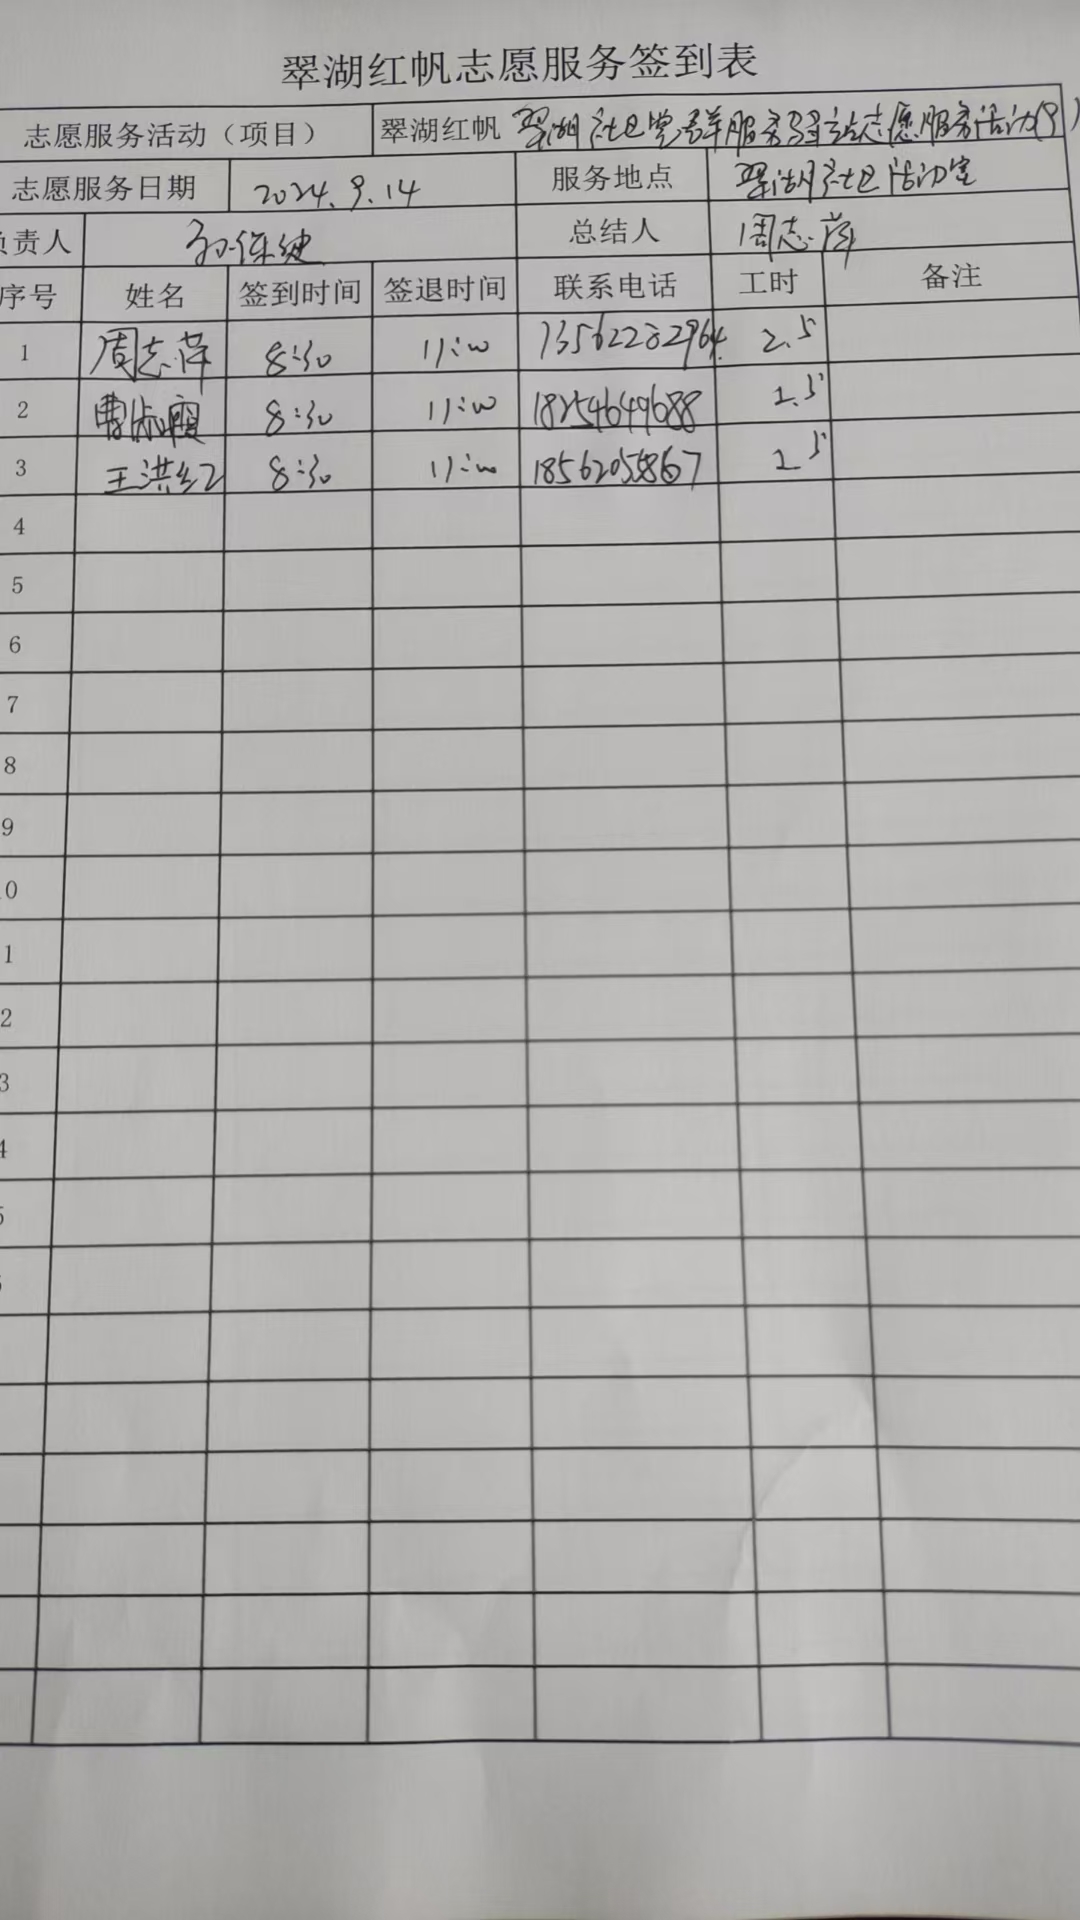 翠湖红帆志愿服务签到表
志愿服务活动（项目） 翠湖红帆 翠湖社区党群服务驿站志愿服务活动(9)
志愿服务日期 2024.9.14 服务地点 翠湖社区活动室
负责人 总结人 周志萍
序号 姓名 签到时间 签退时间 联系电话 工时 备注
1 周志萍 8:30 11:00 13562282964 2.5
2 曹淑霞 8:30 11:00 18254649688 2.5
3 王洪红 8:30 11:00 18562055867 2.5
4
5
6
7
8
9
0
1
2
3
4
5